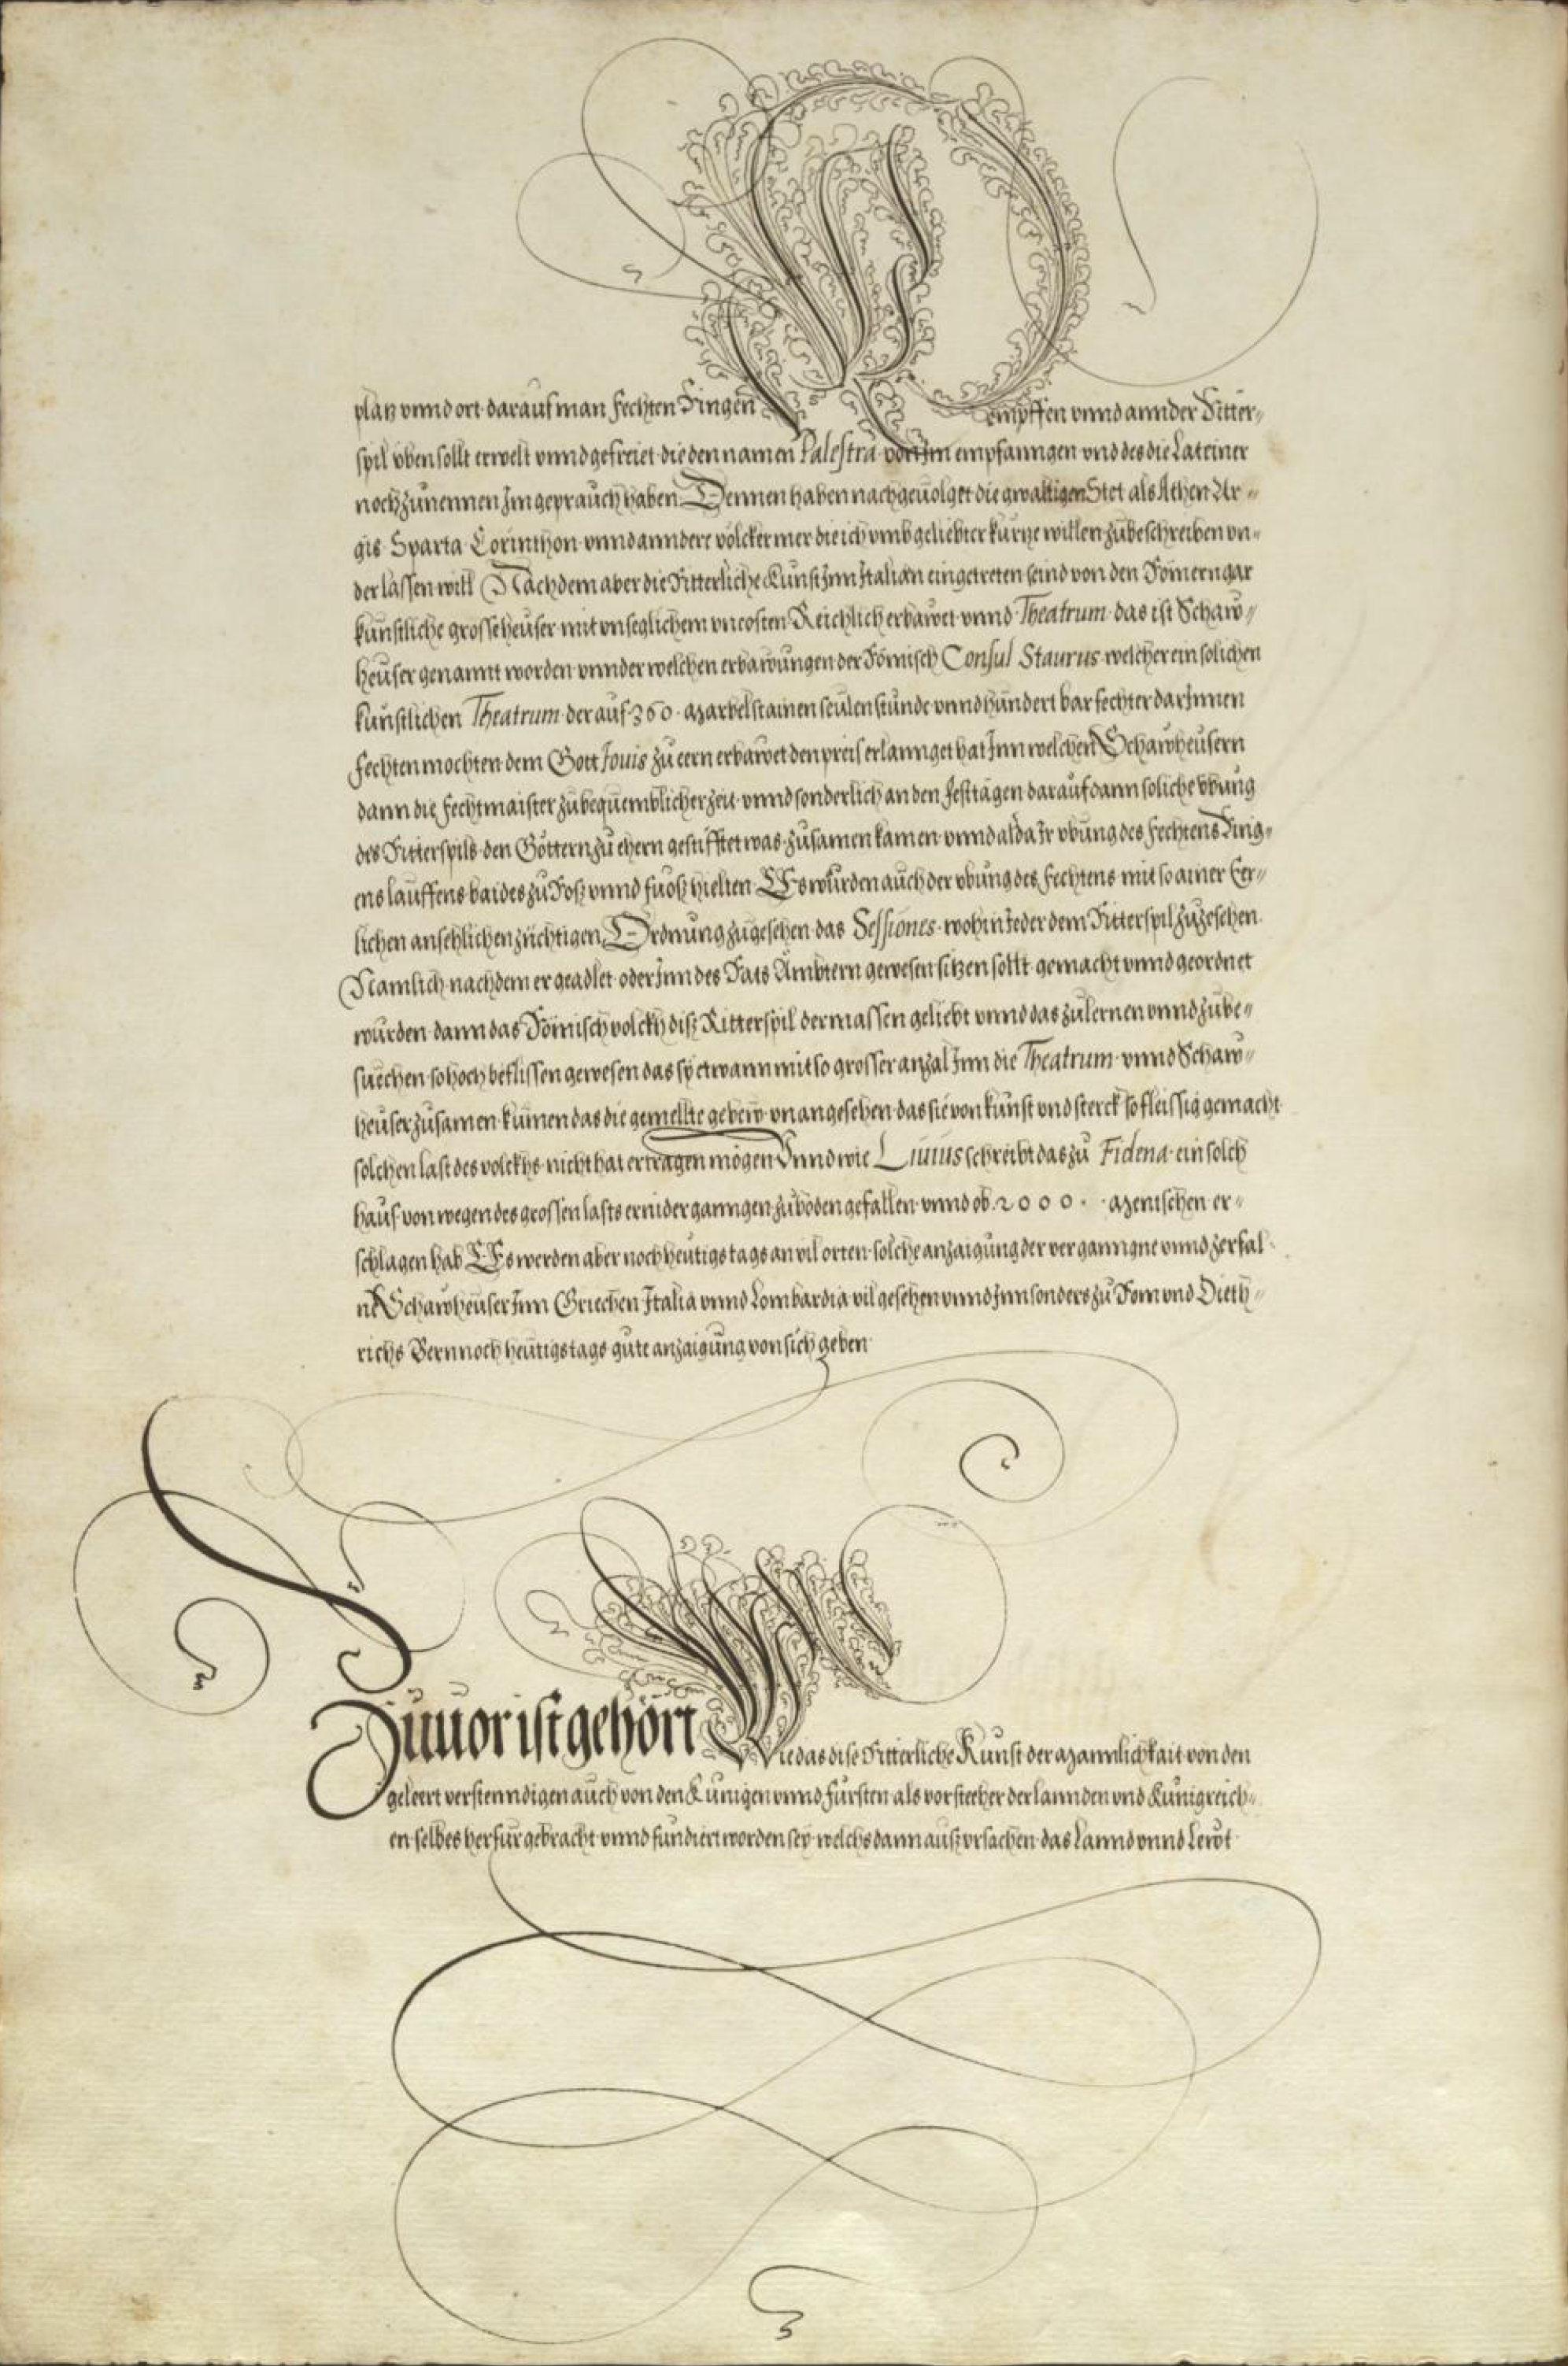 platz vnnd ort darauf man fechten Ringen kempffen vnnd annder Ritter-
spil vben sollt erwelt vnnd gefreiet die den namen Palestra von Im empfanngen vnd des die Lateiner
noch zůnennen Im geprauch haben Dennen haben nachgeuolget die gwaltigen Stet als Athen Ar-
gis Sparta Corinthon vnnd anndere völcker mer die ich vmb geliebter kurtze willen zůbeschreiben vn-
derlassen will Nachdem aber die Ritterliche Kunst Inn Italian eingetreten seind von den Römern gar
kunstliche grosse heuser mit vnseglichem vncosten Reichlich erbawet vnnd Theatrum das ist Schaw-
heuser genannt worden vnnder welchen erbawungen der Römisch Consul Staurus welcher ein solichen
kunstlichen Theatrum der auf 360 Marbelstainen seulen stunde vnnd hundert bar fechter darInnen
fechten mochten dem Gott Iouis zů eern erbawet den preis erlannget hat Inn welchen Schawheusern
dann die fechtmaister zů bequemblicher zeit vnnd sonderlich an den festtägen darauf dann soliche vbung
des Ritterspils den Göttern zů ehern gestifftet was zůsamen kamen vnnd alda Ir vbung des fechtens Ring-
ens lauffens baides zů Roß vnnd fuoß hielten Es wurden auch der vbung des fechtens mit so ainer Eer-
lichen ansehlichen zichtigen Ordnung zůgesehen das Sessiones wohin Ieder dem Ritterspil zůzesehen
Namlich nachdem er geadlet oder Inn des Rats Ämbtern gewesen sitzen sollt gemacht vnnd geordnet
wurden dann das Römisch volckh diß Ritterspil dermassen geliebt vnnd das zůlernen vnnd zůbe-
suechen so hoch beflissen gewesen das sy etwann mit so grosser anzal Inn die Theatrum vnnd Schaw-
heuser zůsamen kumen das die gemellte gebew vnangesehen das sie von kunst vnd sterck so fleissig gemacht
solchen last des volckhs nicht hat ertragen mögen Vnnd wie Liuius schreibt das zů Fidena ein solch
haus von wegen des grossen lasts ernider ganngen zů boden gefallen vnnd ob 2000 Menschen er-
schlagen hab Es werden aber noch heutigs tags an vil orten solche anzaigung der verganngne vnnd zerfal-
ne Schawheuser Inn Griechen Italia vnnd Lombardia vil gesehen vnnd Inn sonders zů Rom vnd Dieth-
richs Bern noch heutigs tags gute anzaigung von sich geben
Zuuor ist gehört Wie das dise Ritterliche Kunst der Mannlichkait von den
geleert verstenndigen auch von den Künigen vnnd fürsten als vorsteeher der lannden vnd Künigreich-
en selbes herfür gebracht vnnd fundiert worden sey welchs dann auß vrsachen das Lannd vnnd Lewt